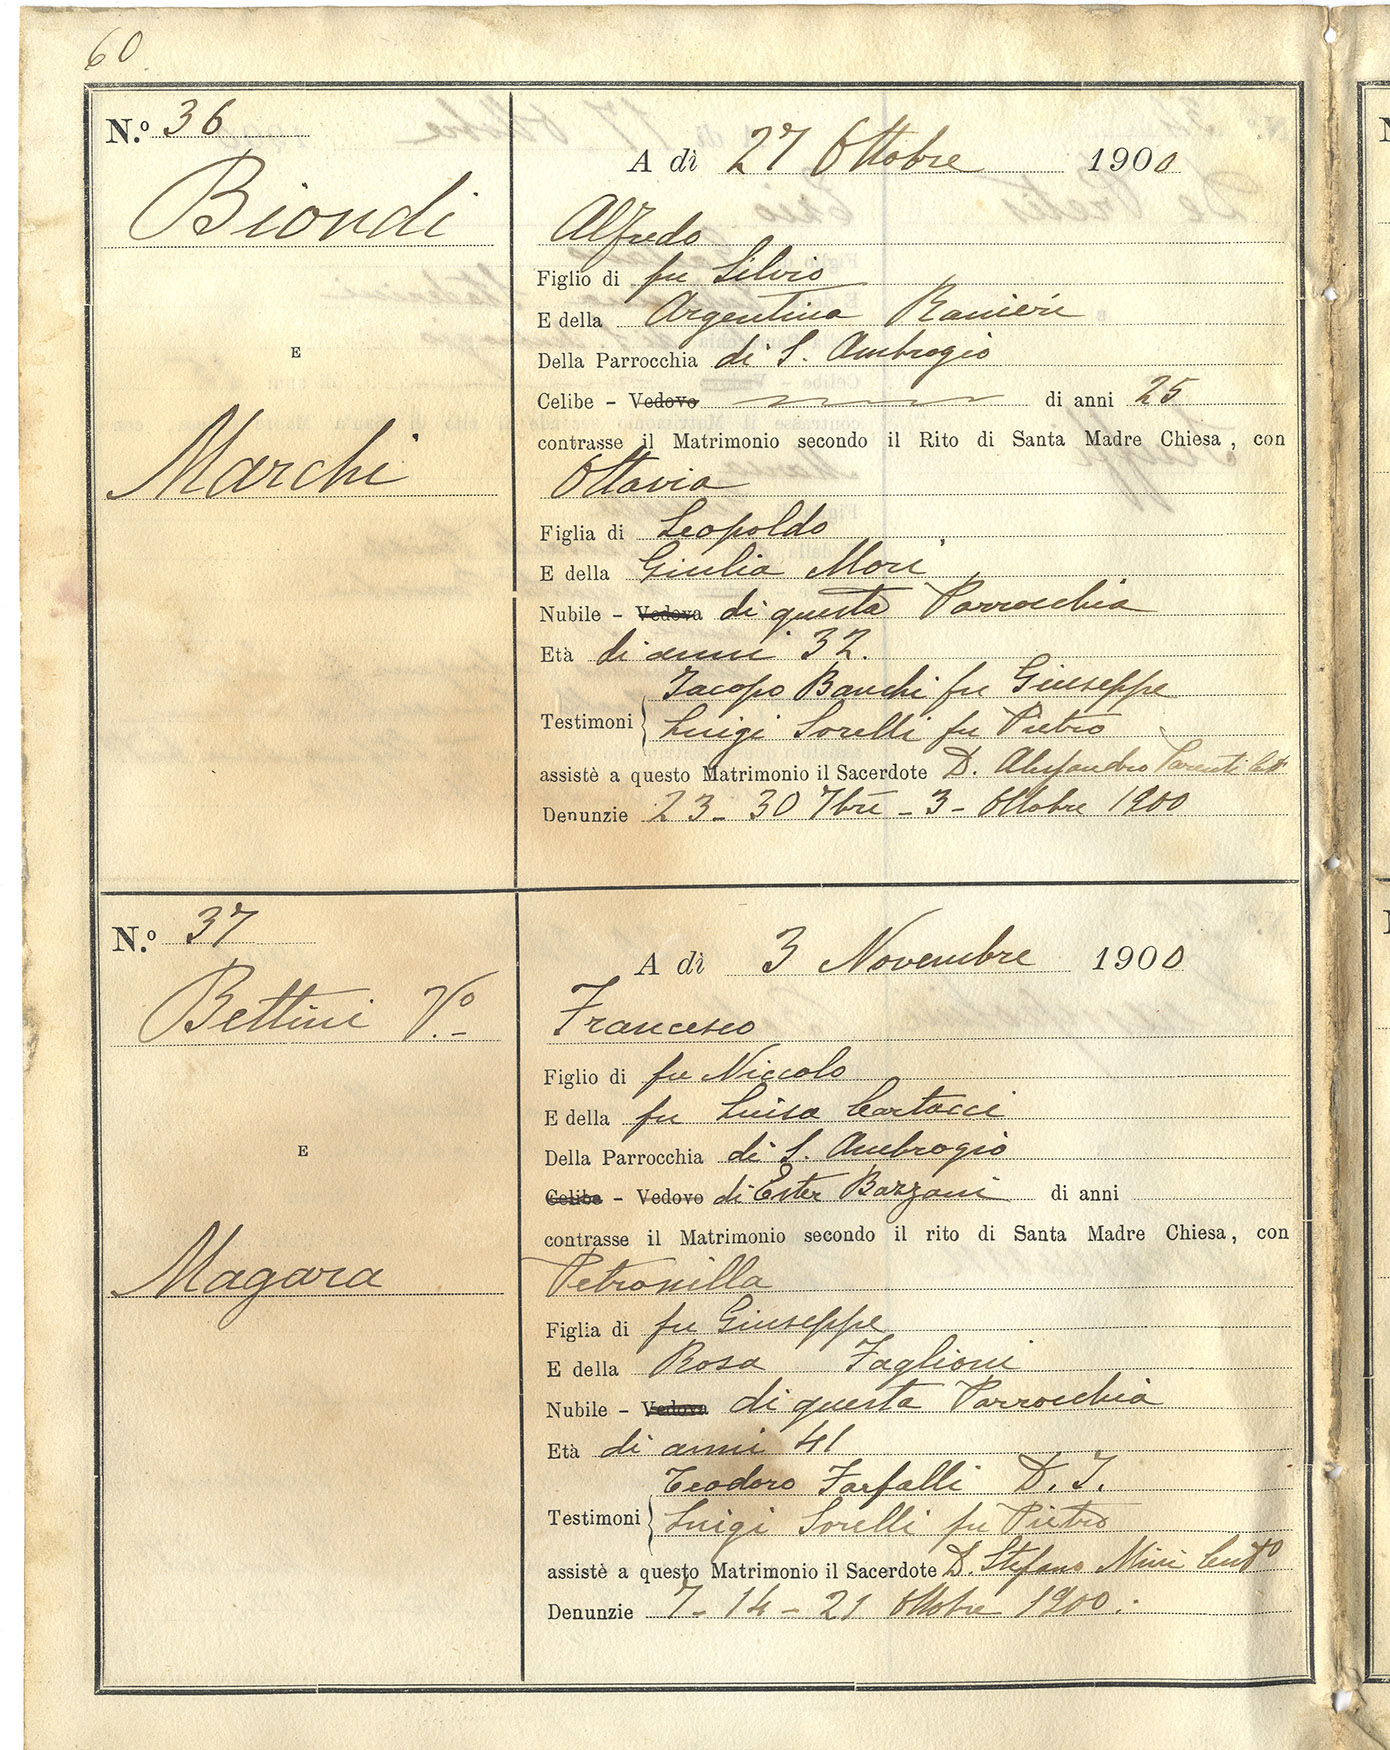 60.
N.º 36
Biondi
E
Marchi
A dì 27 Ottobre 1900
Alfredo
Figlio di fu Silvio
E della Argentina Ranieri
Della Parrocchia di S. Ambrogio
Celibe - Vedovo di anni 25
contrasse il Matrimonio secondo il Rito di Santa Madre Chiesa, con
Ottavia
Figlia di Leopoldo
E della Giulia Mori
Nubile - Vedova di questa Parrocchia
Età di anni 32.
Jacopo Banchi fu Giuseppe
Testimoni { Luigi Sorelli fu Pietro
assistè a questo Matrimonio il Sacerdote D. Alessandro Parenti
Denunzie 23 - 30 7bre - 3 - Ottobre 1900
N.º 37
Bettini Vº.-
E
Magara
A dì 3 Novembre 1900
Francesco
Figlio di fu Niccolo
E della fu Luisa Cartacci
Della Parrocchia di S. Ambrogio
Celibe - Vedovo di Ester Bazzani di anni
contrasse il Matrimonio secondo il rito di Santa Madre Chiesa, con
Petronilla
Figlia di fu Giuseppe
E della Rosa Faglioni
Nubile - Vedova di questa Parrocchia
Età di anni 41
Teodoro Farfalli D. J.
Testimoni { Luigi Sorelli fu Pietro
assistè a questo Matrimonio il Sacerdote D. Stefano Mini
Denunzie 7 - 14 - 21 Ottobre 1900.